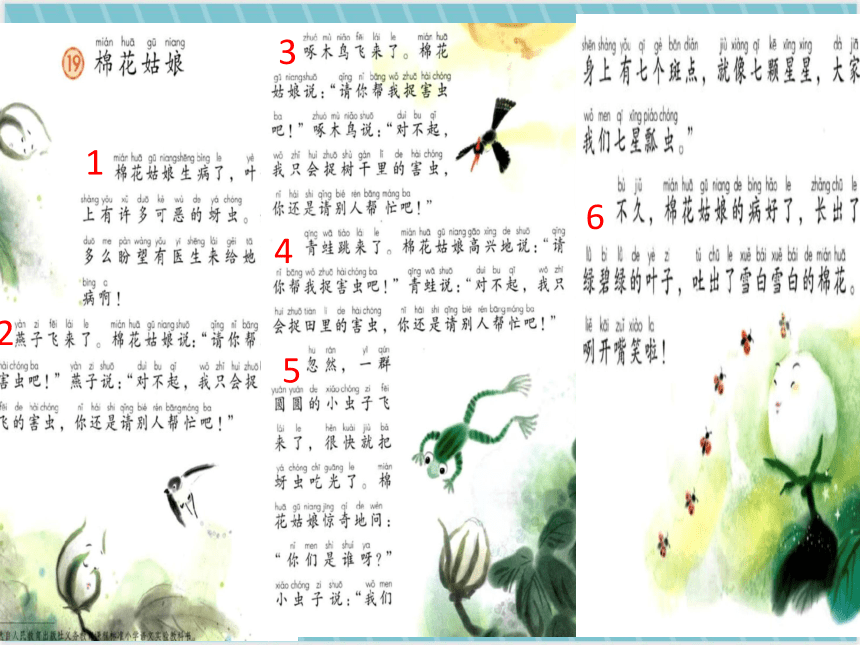 mián huā gū niang
19 棉花姑娘
1
mián huā gū niang shēng bìng le yè
棉花姑娘生病了，叶
shàng yǒu xǔ duō kě wù de yá chóng
上有许多可恶的蚜虫。
duō me pàn wàng yǒu yī shēng lái gěi tā
多么盼望有医生来给她
bìng a
病啊！
2
yàn zi fēi lái le mián huā gū niang shuō qǐng nǐ bāng
燕子飞来了。棉花姑娘说：“请你帮
hài chóng ba yàn zi shuō duì bu qǐ wǒ zhǐ huì zhuō
害虫吧！”燕子说：“对不起，我只会捉
fēi de hài chóng nǐ hái shi qǐng bié rén bāng máng ba
飞的害虫，你还是请别人帮忙吧！”
自人民教育出版社义务教育课程标准小学语文实验教科书。
3
zhuó mù niǎo fēi lái le mián huā
啄木鸟飞来了。棉花
gū niang shuō qǐng nǐ bāng wǒ zhuō hài chóng
姑娘说：“请你帮我捉害虫
ba zhuó mù niǎo shuō duì bu qǐ
吧！”啄木鸟说：“对不起，
wǒ zhǐ huì zhuō shù gàn lǐ de hài chóng
我只会捉树干里的害虫，
nǐ hái shi qǐng bié rén bāng máng ba
你还是请别人帮忙吧！”
4
qīng wā tiào lái le mián huā gū niang gāo xìng de shuō qǐng
青蛙跳来了。棉花姑娘高兴地说：“请
nǐ bāng wǒ zhuō hài chóng ba qīng wā shuō duì bu qǐ wǒ zhǐ
你帮我捉害虫吧！”青蛙说：“对不起，我只
huì zhuō tián lǐ de hài chóng nǐ hái shi qǐng bié rén bāng máng ba
会捉田里的害虫，你还是请别人帮忙吧！”
5
hū rán yì qún
忽然，一群
yuán yuán de xiǎo chóng zi fēi
圆圆的小虫子飞
lái le hěn kuài jiù bǎ
来了，很快就把
yá chóng chī guāng le mián
蚜虫吃光了。棉
huā gū niang jīng qí de wèn
花姑娘惊奇地问：
nǐ men shì shuí ya
“你们是谁呀？”
xiǎo chóng zi shuō wǒ men
小虫子说：“我们
shēn shàng yǒu qī gè bān diǎn jiù xiàng qī kē xīng xing dà jiā
身上有七个斑点，就像七颗星星，大家
wǒ men qī xīng piáo chóng
我们七星瓢虫。”
6
bù jiǔ mián huā gū niang de bìng hǎo le zhǎng chū le
不久，棉花姑娘的病好了，长出了
lǜ bì lǜ de yè zi tǔ chū le xuě bái xuě bái de mián huā
绿碧绿的叶子，吐出了雪白雪白的棉花。
liě kāi zuǐ xiào la
咧开嘴笑啦！